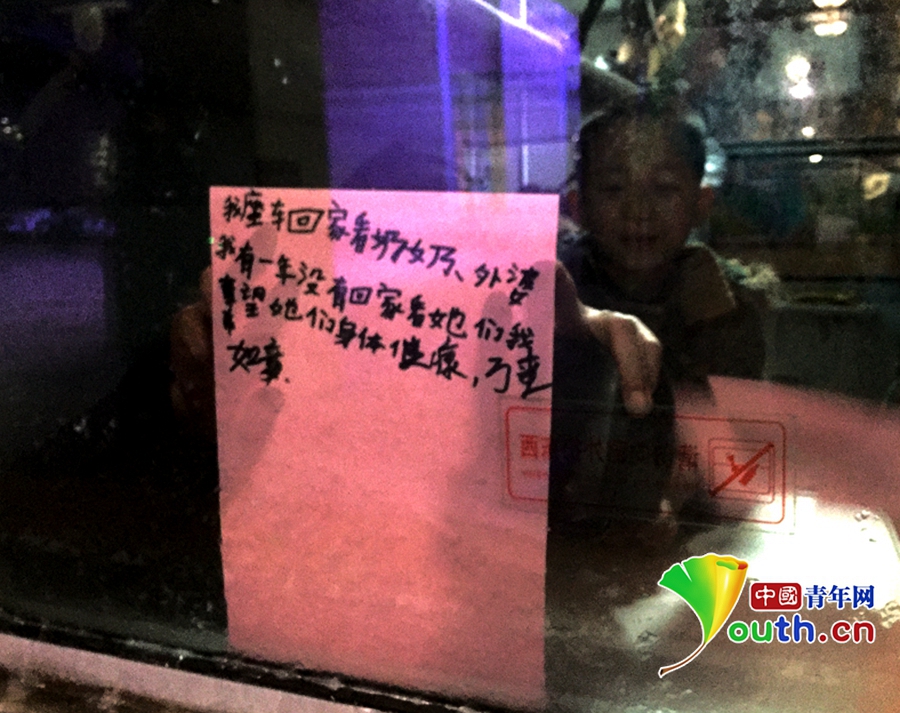 我座车回家看奶奶、外婆
我有一年没有回家看她们我
希望她们身体健康，万事
如意、
中國青年网
Youth.cn